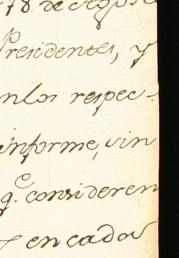 18 de
Presidentes, y
en los respec-
informe, sin
q.e consideren
en cada